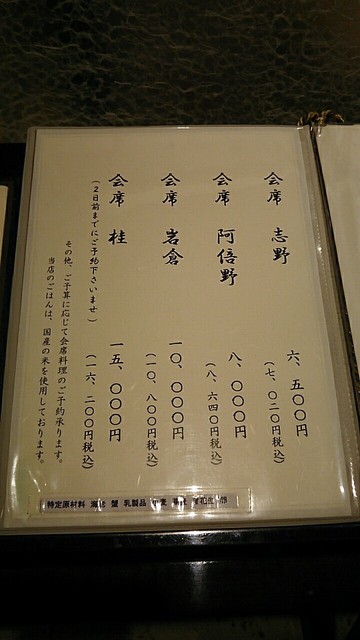 会席 志野 六、五〇〇円
(七、〇二〇円税込)
会席 阿倍野 八、〇〇〇円
(八、六四〇円税込)
会席 岩倉 一〇、〇〇〇円
(一〇、八〇〇円税込)
会席 桂 一五、〇〇〇円
(2日前までにご予約下さいませ) (一六、二〇〇円税込)
その他、ご予算に応じて会席料理のご予約承ります。
当店のごはんは、国産の米を使用しております。
特定原材料 蟹 乳製品